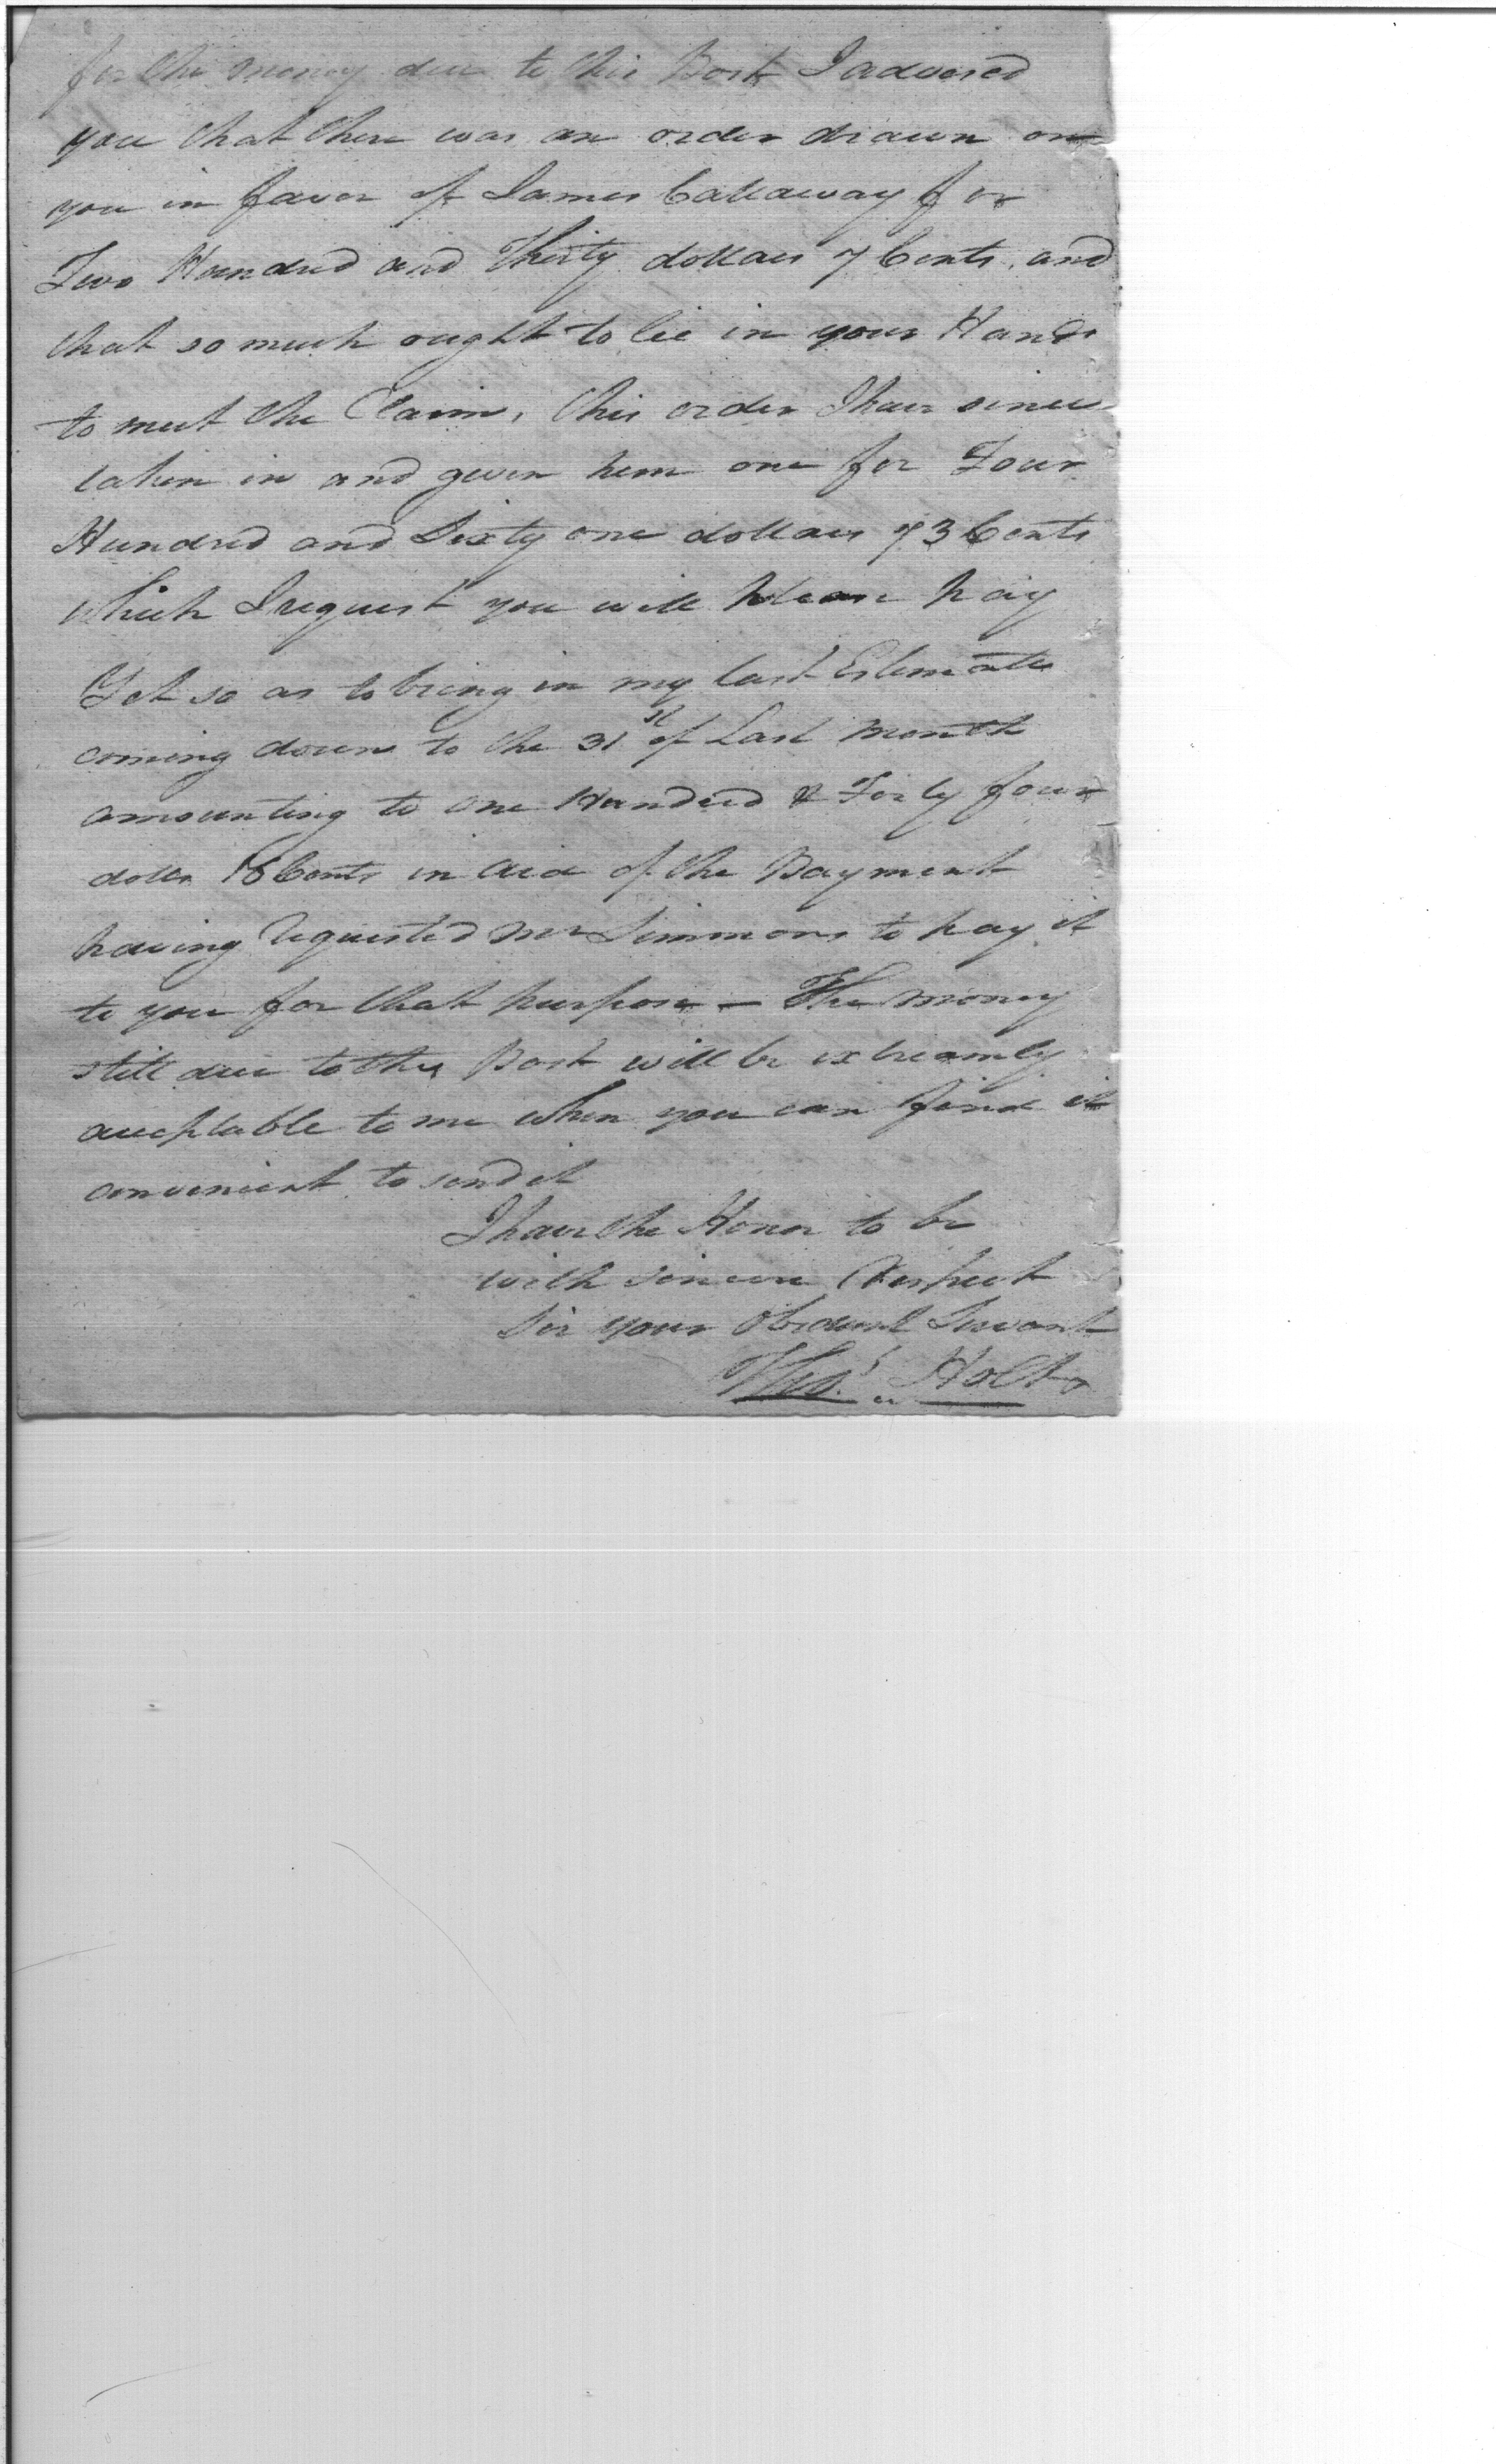 for the money due to this Post I advised
you that there was an order drawn on
you in favor of James Callaway for
Two Hundred and Thirty dollars 7 Cents, and
that so much ought to lie in your Hands
to meet the Claim, this order I have since
taken in and given him one for Four
Hundred and Sixty one dollars 73 Cents
which I request you will please pay
Yet so as to bring in my last Estimate
coming down to the 31st of Last month
amounting to One Hundred & Forty four
dolls 18 Cents in aid of the Payment
having requested Mr Simmons to pay it
to you for that purpose — The money
still due to this Post will be extreamly
acceptable to me when you can find it
convenient to send it
I have the Honor to be
with sincere Respect
Sir your Obedient Servant
Thos. Holt